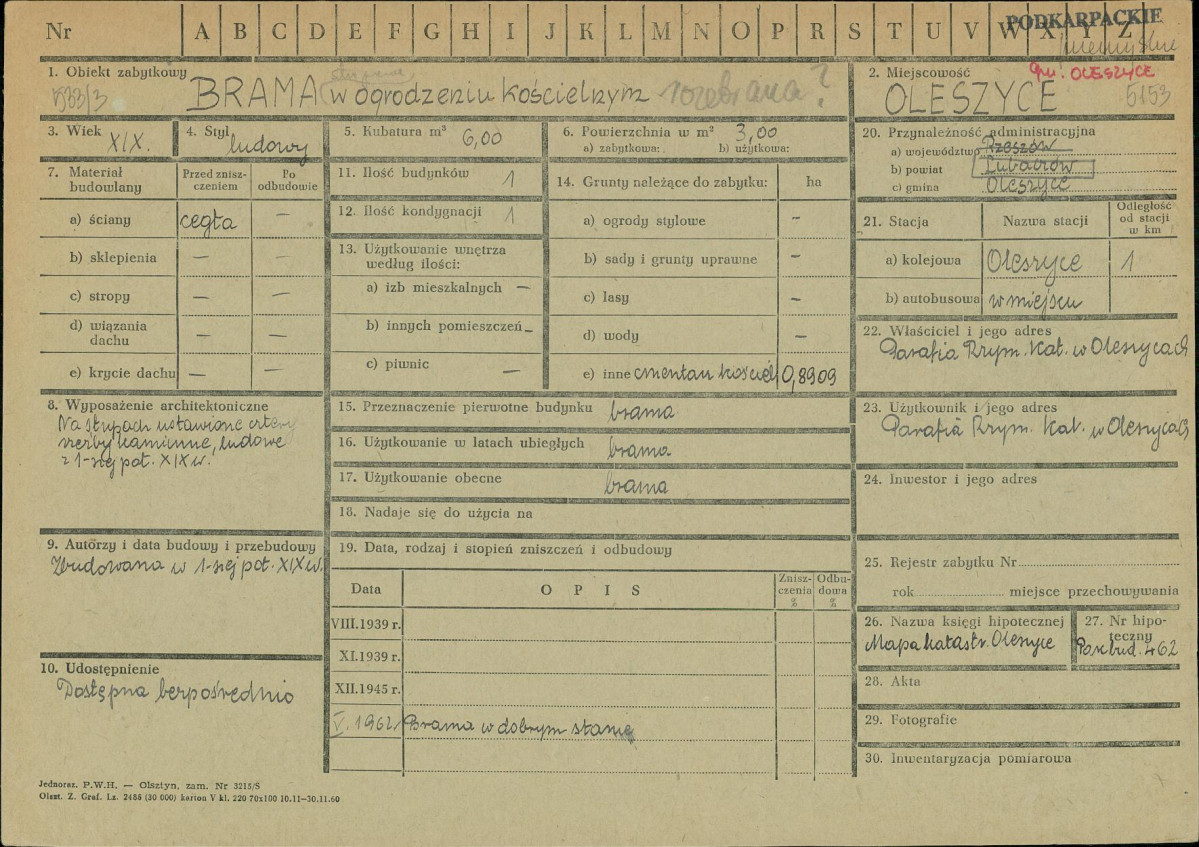 Nr A B C D E F G H I J K L M N O P R S T U V W X Y Z
PODKARPACKIE
1. Obiekt zabytkowy
533/3
BRAMA w ogrodzeniu kościelnym rozebrana?
2. Miejscowość gm. OLESZYCE
OLESZYCE 5153
3. Wiek XIX.
4. Styl ludowy
5. Kubatura m³ 6,00
6. Powierzchnia w m² 3,00
a) zabytkowa: b) użytkowa:
20. Przynależność administracyjna
a) województwo Rzeszów
b) powiat Lubaczów
c) gmina Oleszyce
7. Materiał budowlany
Przed zniszczeniem
Po odbudowie
a) ściany cegła —
b) sklepienia — —
c) stropy — —
d) wiązania dachu — —
e) krycie dachu — —
11. Ilość budynków 1
12. Ilość kondygnacji 1
13. Użytkowanie wnętrza
według ilości:
a) izb mieszkalnych —
b) innych pomieszczeń —
c) piwnic —
14. Grunty należące do zabytku: ha
a) ogrody stylowe —
b) sady i grunty uprawne —
c) lasy —
d) wody —
e) inne cmentarz kościel. 0,8909
21. Stacja
Nazwa stacji
Odległość
od stacji
w km
a) kolejowa Oleszyce 1
b) autobusowa w miejscu
22. Właściciel i jego adres
Parafia Rzym. Kat. w Oleszycach
8. Wyposażenie architektoniczne
Na słupach ustawione cztery
rzeźby kamienne, ludowe
z 1-szej poł. XIX w.
15. Przeznaczenie pierwotne budynku brama
16. Użytkowanie w latach ubiegłych brama
17. Użytkowanie obecne brama
18. Nadaje się do użycia na
23. Użytkownik i jego adres
Parafia Rzym. Kat. w Oleszycach
24. Inwestor i jego adres
9. Autorzy i data budowy i przebudowy
Zbudowana w 1-szej poł. XIX w.
19. Data, rodzaj i stopień zniszczeń i odbudowy
Data
OPIS
Zniszczenia %
Odbudowa %
VIII.1939 r.
XI.1939 r.
XII.1945 r.
V. 1962 r. Brama w dobrym stanie
25. Rejestr zabytku Nr
rok miejsce przechowywania
26. Nazwa księgi hipotecznej
Mapa katastr. Oleszyce
27. Nr hipoteczny
Parc. bud. 462
10. Udostępnienie
Dostępna bezpośrednio
28. Akta
29. Fotografie
30. Inwentaryzacja pomiarowa
Jednoraz. P.W.H. — Olsztyn, zam. Nr 3215/S
Olszt. Z. Graf. Lz. 2485 (30 000) karton V kl. 220 70x100 10.11—30.11.60